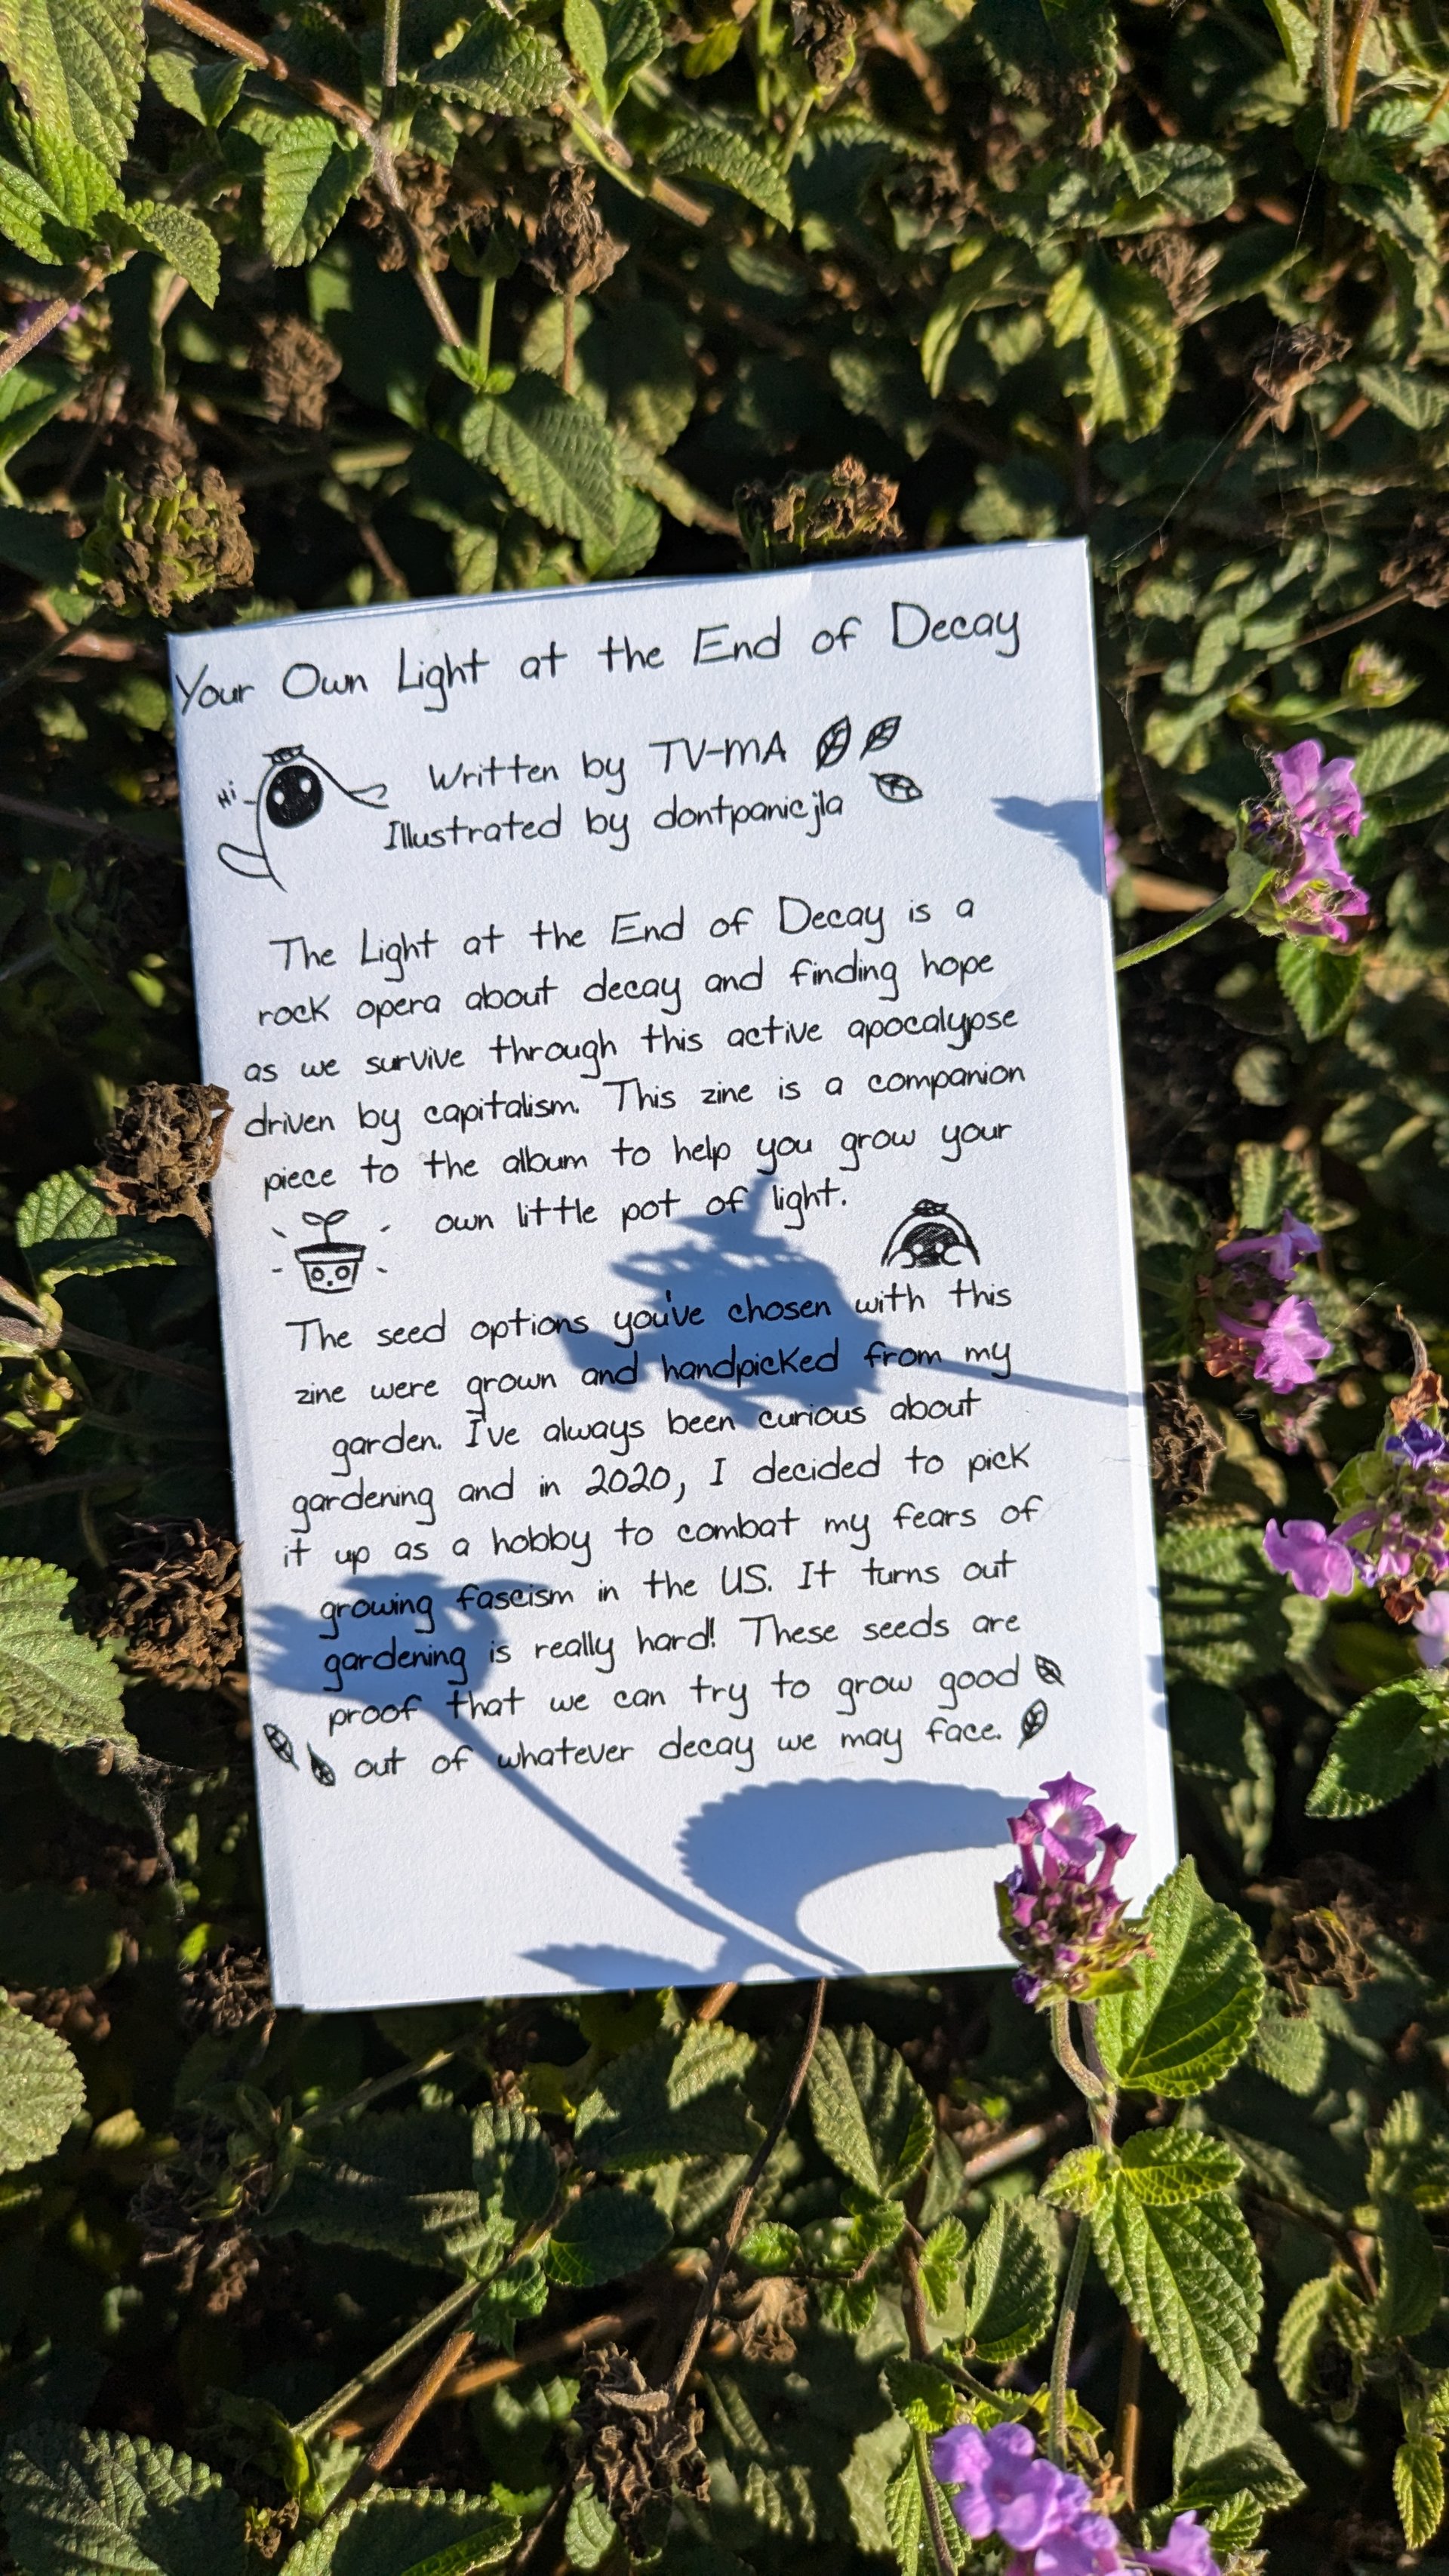 Your Own Light at the End of Decay
Hi
Written by TV-MA
Illustrated by dontpanicjla
The Light at the End of Decay is a
rock opera about decay and finding hope
as we survive through this active apocalypse
driven by capitalism. This zine is a companion
piece to the album to help you grow your
own little pot of light.
The seed options you've chosen with this
zine were grown and handpicked from my
garden. I've always been curious about
gardening and in 2020, I decided to pick
it up as a hobby to combat my fears of
growing fascism in the US. It turns out
gardening is really hard! These seeds are
proof that we can try to grow good
out of whatever decay we may face.